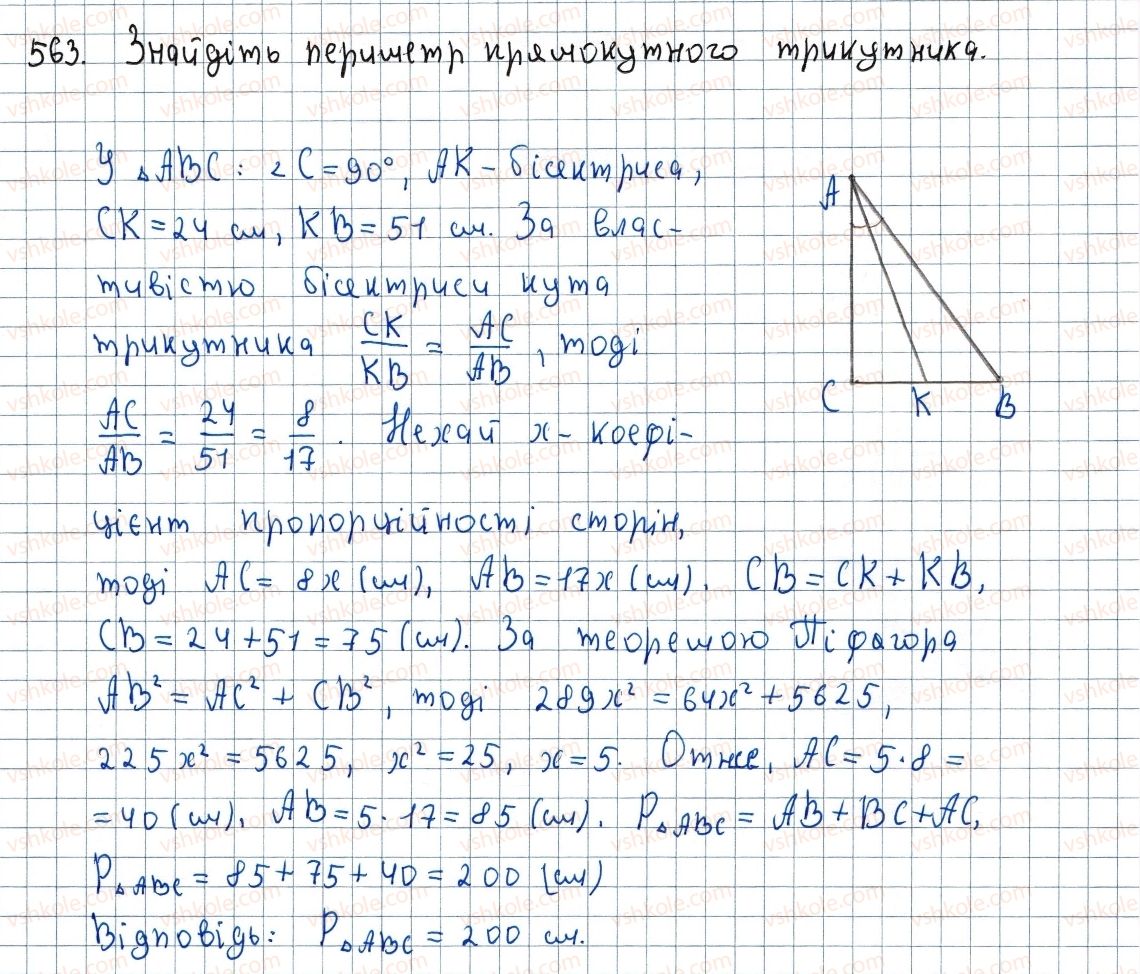 563. Знайдіть периметр прямокутного трикутника.
У △ABC: ∠C = 90°, AK - бісектриса,
CK = 24 см, KB = 51 см. За влас-
тивістю бісектриси кута
трикутника CK/KB = AC/AB, тоді
AC/AB = 24/51 = 8/17. Нехай x - коефі-
цієнт пропорційності сторін,
тоді AC = 8x (см), AB = 17x (см). CB = CK + KB,
CB = 24 + 51 = 75 (см). За теоремою Піфагора
AB² = AC² + CB², тоді 289x² = 64x² + 5625,
225x² = 5625, x² = 25, x = 5. Отже, AC = 5·8 =
= 40 (см), AB = 5·17 = 85 (см). P△ABC = AB + BC + AC,
P△ABC = 85 + 75 + 40 = 200 (см)
Відповідь: P△ABC = 200 см.
A
C K B
vshkole.com